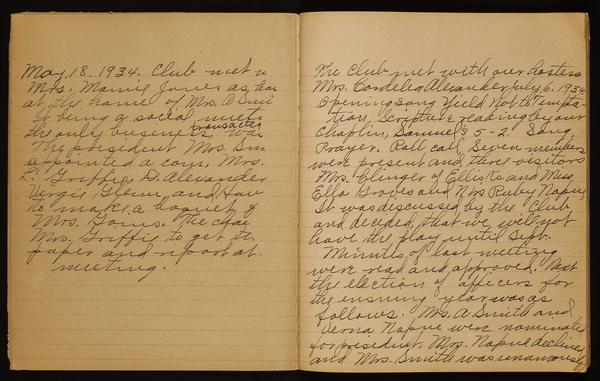 May, 18. 1934. Club met w
Mrs. Mamie Jones as hos
at the home of Mrs. A Smi
It being a social meeti
the only business transacted was
The president Mrs. Sm
appointed a com, Mrs.
L. Griffie, D. Alexander
Virgie Glenn, and
to make a boquet of
Mrs. The
Mrs. Griffie to get the
paper and report at
meeting.
The Club met with our hostess
Mrs. Cordelia Alexander July 6, 1934
Opening song Yield Not to Tempta-
tion, Scripture reading by our
Chaplin, Samuel 5-2. Song,
Prayer. Roll call, Seven members
were present and three visitors
Mrs. Clinger of Ellis to and Miss
Ella Groves and Mrs Ruby Napue,
It was discussed by the Club
and decided, that we will not
have the play until Sept.
Minutes of last meeting
were read and approved. Next
the election of officers for
the ensuing year was as
follows. Mrs. A Smith and
Verna Napue were nominated
for president. Mrs. Napue declined
and Mrs. Smith was unanamously